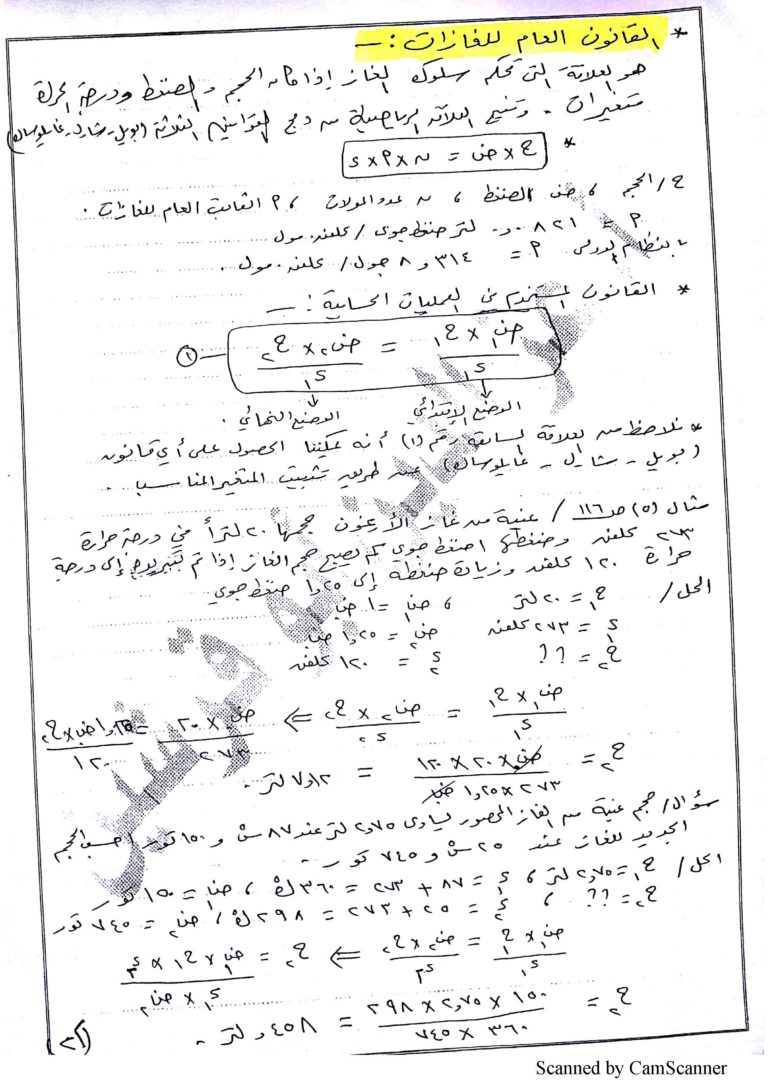 * القانون العام للغازات : ـ
هو العلاقة التي تحكم سلوك الغاز إذا كان الحجم والضغط ودرجة الحرارة
متغيرات . وتنتج العلاقة الرياضية من دمج القوانين الثلاثة (بويل - شارل - غايلوساك)
* ح × ض = ن × م × د
ح / الحجم ، ض الضغط ، ن عدد المولات ، م الثابت العام للغازات .
م = ٨٢١ و٠ لتر ضغط جوي / كلفن . مول
بالنظام الدولي م = ٣١٤ و ٨ جول / كلفن . مول .
* القانون المستخدم في العمليات الحسابية : ـ
ض١ × ح١ / د١ = ض٢ × ح٢ / د١ ـ ①
الوضع الإبتدائي الوضع النهائي .
* نلاحظ من العلاقة السابقة رقم (١) أنه يمكننا الحصول على أي قانون
(بويل - شارل - غايلوساك) عن طريق تثبيت المتغير المناسب .
مثال (٥) ص ١١٦ / عينة من غاز الأرغون حجمها ٢٠ لتراً في درجة حرارة
٢٧٣ كلفن وضغطها ١ ضغط جوي كم يصبح حجم الغاز إذا تم تبريده إلى درجة
حرارة ١٢٠ كلفن وزيادة ضغطه إلى ٢٥ و١ ضغط جوي
الحل / ح١ = ٢٠ لتر ، ض١ = ١ ض
د١ = ٢٧٣ كلفن ض٢ = ٢٥ و١ ض
ح٢ = ؟؟ د٢ = ١٢٠ كلفن
ض١ × ح١ / د١ = ض٢ × ح٢ / د٢ ⇐ ض١ × ٢٠ / ٢٧٣ = ٢٥ و١ ض × ح٢ / ١٢٠
ح٢ = ض × ٢٠ × ١٢٠ / ٢٧٣ × ٢٥ و١ ض = ١٢ و٧ لتر .
سؤال / حجم عينة من الغاز المحصور يساوي ٧٥ و٢ لتر عند ٨٧ س و ١٥٠ تور احسب الحجم
الجديد للغاز عند ٢٥ س و ٧٤٥ تور .
الحل / ح١ = ٧٥ و٢ لتر ، د١ = ٨٧ + ٢٧٣ = ٣٦٠ ك ، ض١ = ١٥٠ تور
ح٢ = ؟؟ ، د٢ = ٢٥ + ٢٧٣ = ٢٩٨ ك ، ض٢ = ٧٤٥ تور
ض١ × ح١ / د١ = ض٢ × ح٢ / د٢ ⇐ ح٢ = ض١ × ح١ × د٢ / د١ × ض٢
ح٢ = ١٥٠ × ٧٥ و٢ × ٢٩٨ / ٣٦٠ × ٧٤٥ = ٤٥٨ و لتر .
Scanned by CamScanner